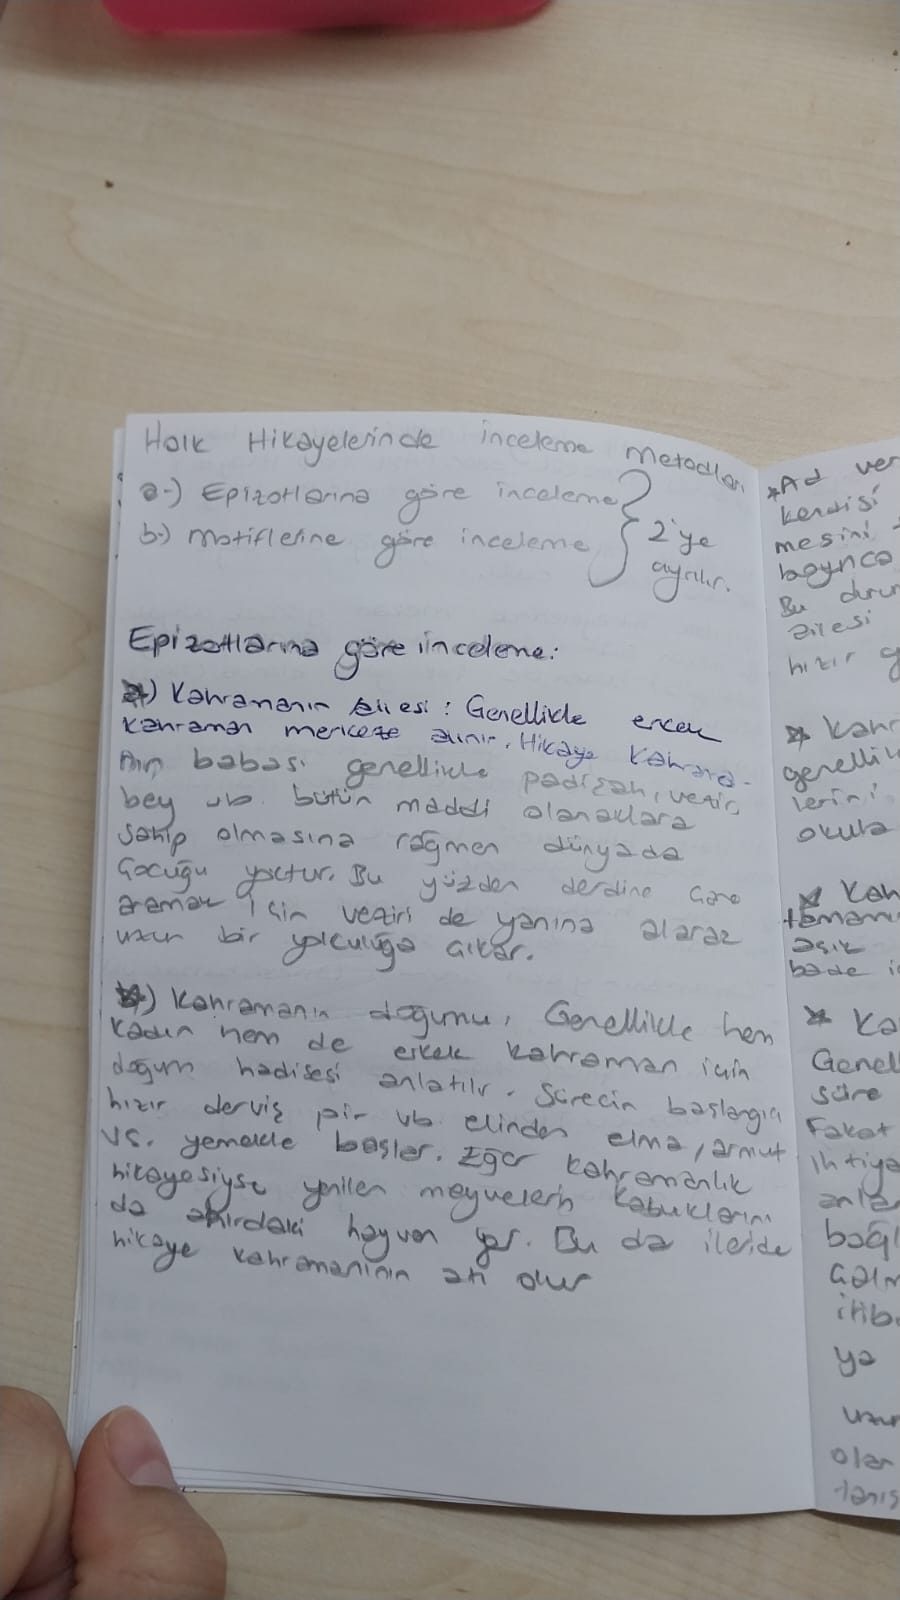 Halk Hikayelerinde inceleme metodları
a-) Epizotlarına göre inceleme
b-) motiflerine göre inceleme
2'ye
ayrılır.
Epizotlarına göre inceleme:
*) Kahramanın ailesi: Genellikle erkek
kahraman merkeze alınır. Hikaye kahrama-
nın babası genellikle padişah, vezir,
bey vb. bütün maddi olanaklara
sahip olmasına rağmen dünyada
çocuğu yoktur. Bu yüzden derdine çare
aramak için veziri de yanına alarak
uzun bir yolculuğa çıkar.
*) Kahramanın doğumu, Genellikle hem
kadın hem de erkek kahraman için
doğum hadisesi anlatılır. Sürecin başlangıcı
hızır derviş pir vb elinden elma, armut
vs. yemekle başlar. Eğer kahramanlık
hikayesiyse yenilen meyvelerin kabuklarını
da ahırdaki hayvan yer. Bu da ileride
hikaye kahramanının atı olur
*Ad ver
kendisi
mesini
boynca
Bu durum
ailesi
hızır g
* Kahr
genellik
lerini
okula
* Kah
tamamı
aşık
bade i
* Ka
Genel
süre
Fakat
ihtiya
anla
bağl
çalm
itiba
ya
uzun
olan
tanış